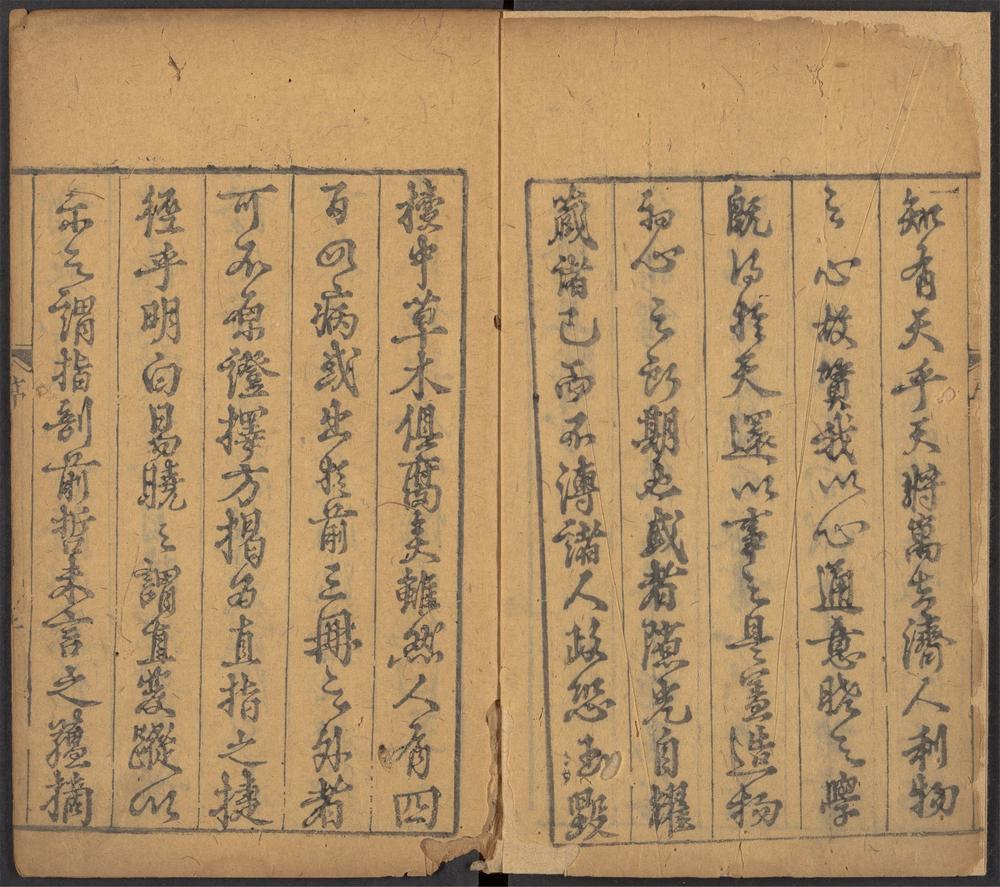 知有天乎天將寓吾濟人利物
之心故賚我以心通意曉之學
既得於天還以事之是蓋造物
初心之所期也或者隱光自耀
藏諸己而不溥諸人政恐
毀
櫝中草木俱腐矣雖然人有四
百四病或出於前三冊之外者
可不原證擇方揭為直指之捷
徑乎明白易曉之謂直發蹤以
示之謂指剖前哲未言之蘊摘